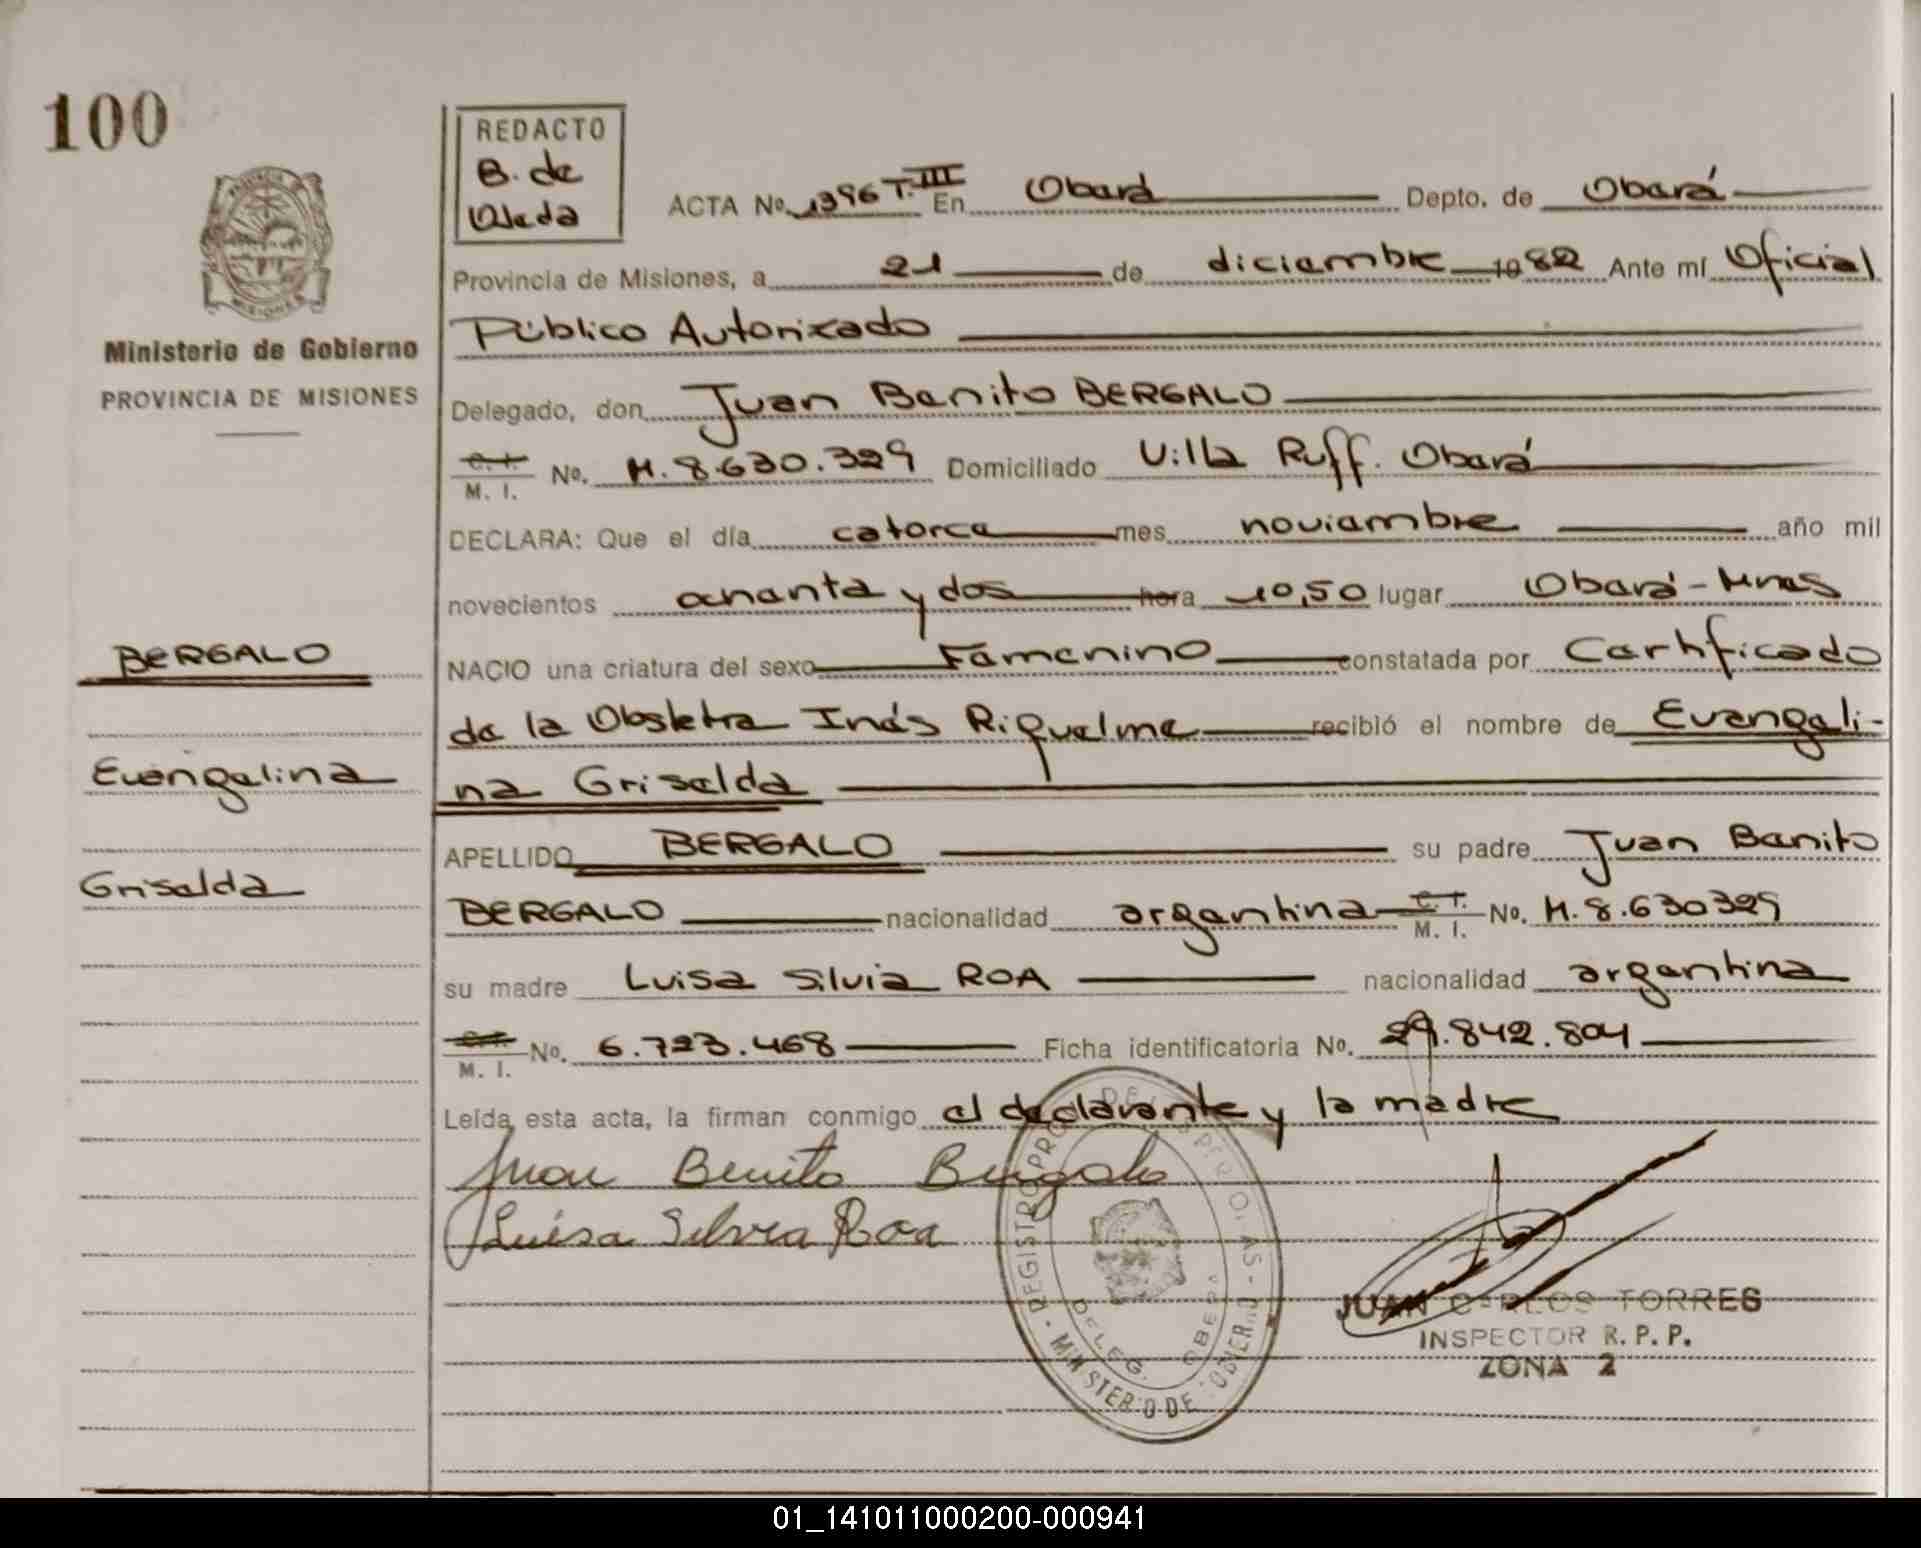 100
REDACTO
B. de
Ojeda
ACTA No. 1396 T. III En Oberá Depto. de Oberá
Provincia de Misiones, a 21 de diciembre 1982 Ante mí Oficial
Público Autorizado
Ministerio de Gobierno
PROVINCIA DE MISIONES
Delegado, don Juan Benito BERGALO
C. I.
M. I. No. M. 8.630.329 Domiciliado Villa Ruff. Oberá
DECLARA: Que el día catorce mes noviembre año mil
novecientos ochenta y dos hora 10,50 lugar Oberá - Mnes
BERGALO
NACIO una criatura del sexo Femenino constatada por Certificado
de la Obstetra Inés Riquelme recibió el nombre de Evangeli-
Evangelina
na Griselda
APELLIDO BERGALO su padre Juan Benito
Griselda
BERGALO nacionalidad argentina C. I. M. I. No. M. 8.630329
su madre Luisa Silvia ROA nacionalidad argentina
C. I.
M. I. No. 6.723.468 Ficha identificatoria No. 29.842.804
Leída esta acta, la firman conmigo el declarante y la madre
Juan Benito Bergalo
Luisa Silvia Roa
REGISTRO PROV. DE LAS PERSONAS - MINISTERIO DE GOBIERNO
DELEG. OBERA
JUAN CARLOS TORRES
INSPECTOR R. P. P.
ZONA 2
01_141011000200-000941